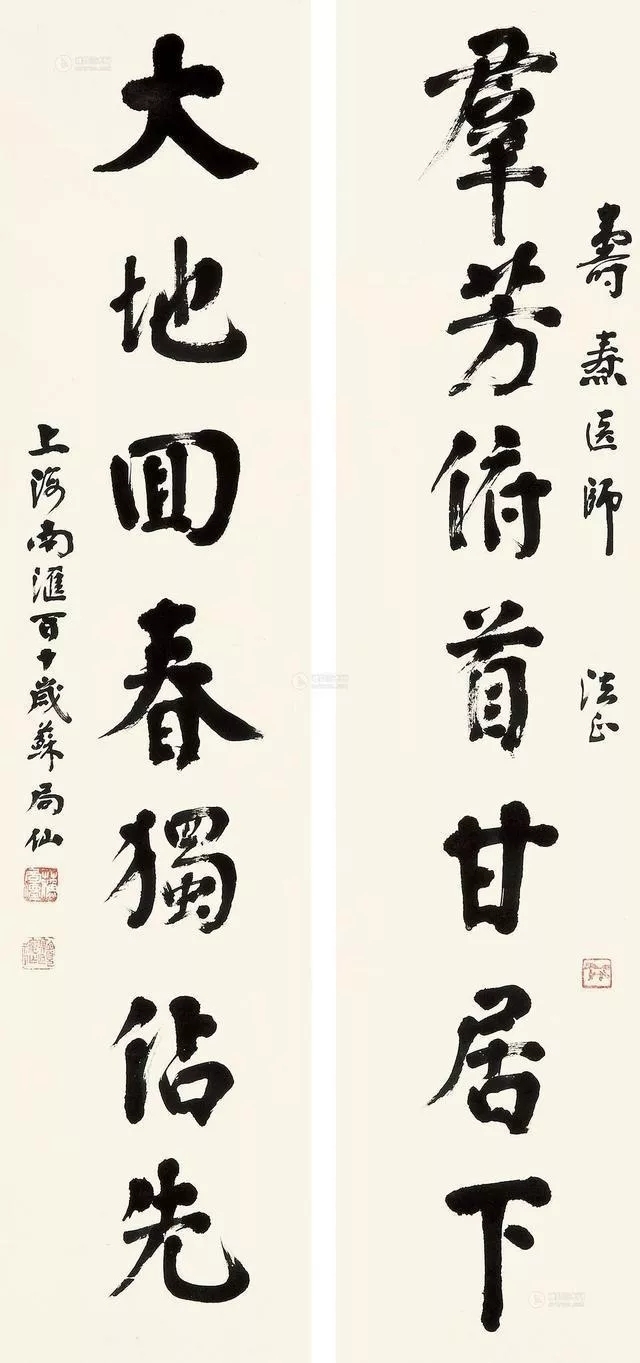 壽焘医師 法正
羣芳俯首甘居下
大地回春獨佔先
上海南滙百十歲蘇局仙